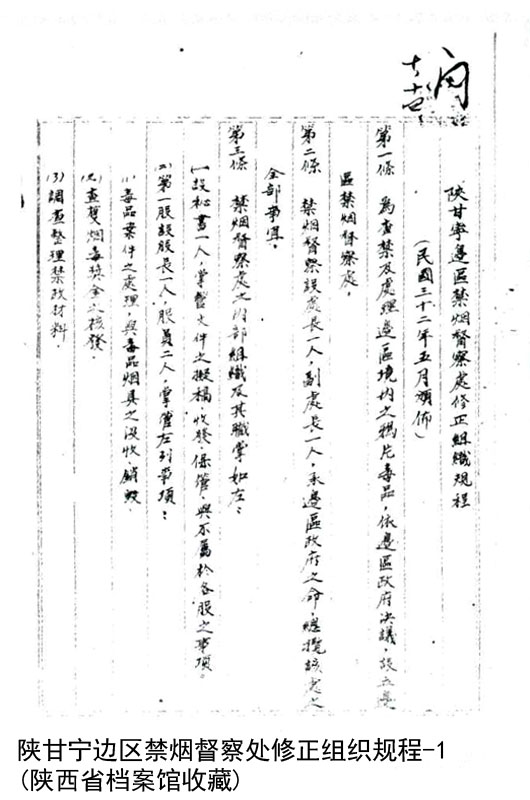 陝甘寧邊區禁烟督察處修正組織規程
（民國三十二年五月頒佈）
第一條　為查禁及處理邊區境內之鴉片毒品，依邊區政府決議，設立邊
區禁烟督察處。
第二條　禁烟督察設處長一人，副處長一人，承邊區政府之命，總攬該處之
全部事宜。
第三條　禁烟督察處之內部組織及其職掌如左：
㈠設秘書一人，掌管文件之擬稿、收發、保管，與不屬於各股之事項。
㈡第一股設股長一人，股員二人，掌管左列事項：
⑴毒品案件之處理，與毒品烟具之沒收、銷毀
⑵查獲烟毒獎金之核發。
⑶調查整理禁政材料。
陕甘宁边区禁烟督察处修正组织规程-1
(陕西省档案馆收藏)